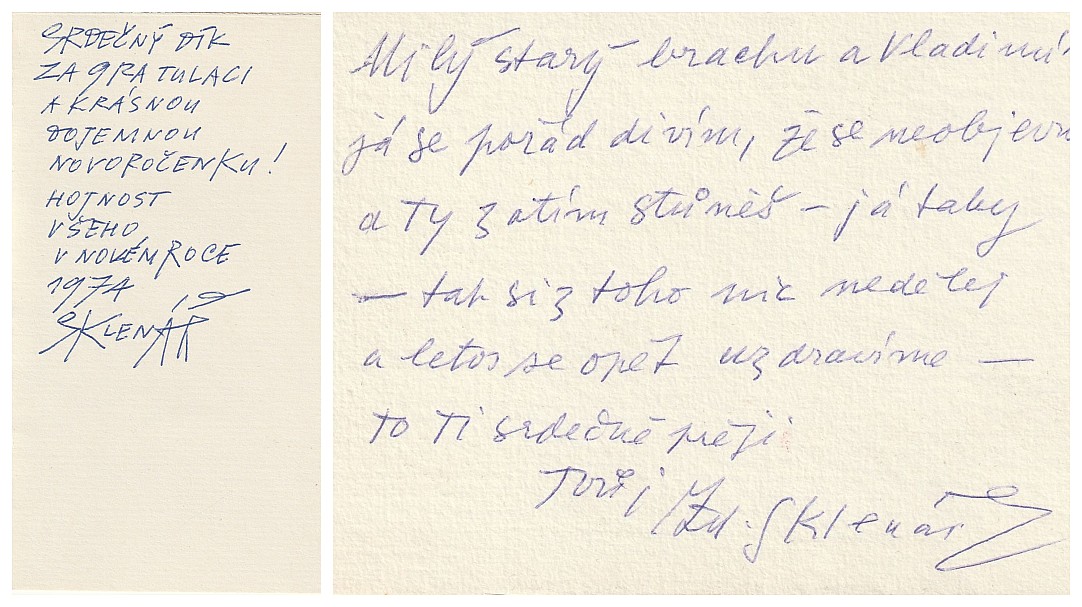 SRDEČNÝ DÍK
ZA GRATULACI
A KRÁSNOU
DOJEMNOU
NOVOROČENKU!
HOJNOST
VŠEHO
V NOVÉM ROCE
1974
SKLENÁŘ
Milý starý brachu a Vladimí
já se pořád divím, že se neobjevu
a Ty zatím stůněš – já taky
– tak si z toho nic nedělej
a letos se opět uzdravíme –
to Ti srdečně přeji
Tvůj Zd. Sklenář